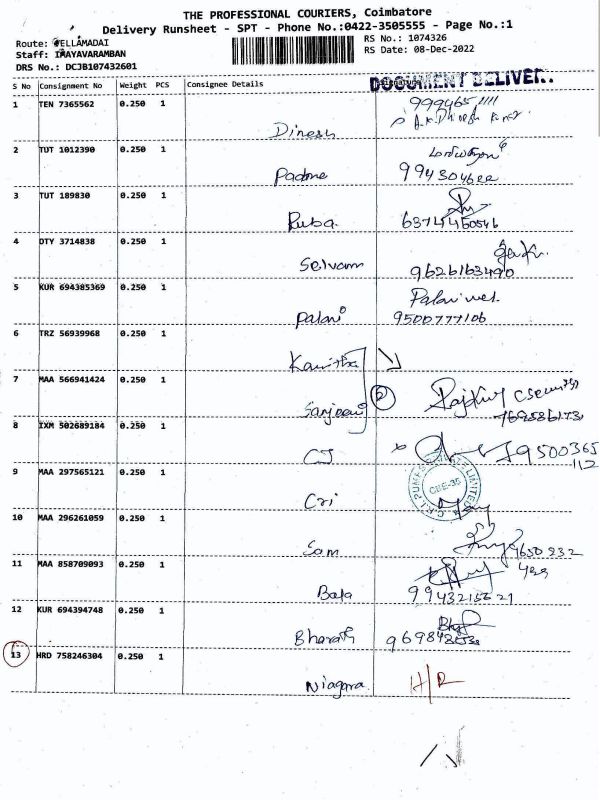 THE PROFESSIONAL COURIERS, Coimbatore
Delivery Runsheet - SPT - Phone No.:0422-3505555 - Page No.:1
Route: VELLAMADAI
RS No.: 1074326
Staff: IMAYAVARAMBAN
RS Date: 08-Dec-2022
DRS No.: DCJB107432601
S No Consignment No Weight PCS Consignee Details Signature
DOCUMENT DELIVER.
1 TEN 7365562 0.250 1 Dinesh
2 TUT 1012390 0.250 1 Padma
3 TUT 189830 0.250 1 Ruba
4 DTY 3714838 0.250 1 Selvam 9626163490
5 KUR 694385369 0.250 1 Palani Palanivel
9500777106
6 TRZ 56939968 0.250 1 Kavitha
7 MAA 566941424 0.250 1 Sanjeevi
8 IXM 502689184 0.250 1 CJ 9500365
112
9 MAA 297565121 0.250 1 Cri CBE-35
10 MAA 296261059 0.250 1 Sam
11 MAA 858709093 0.250 1 Bala
12 KUR 694394748 0.250 1 Bharath
13 HRD 758246304 0.250 1 Niagara H/R